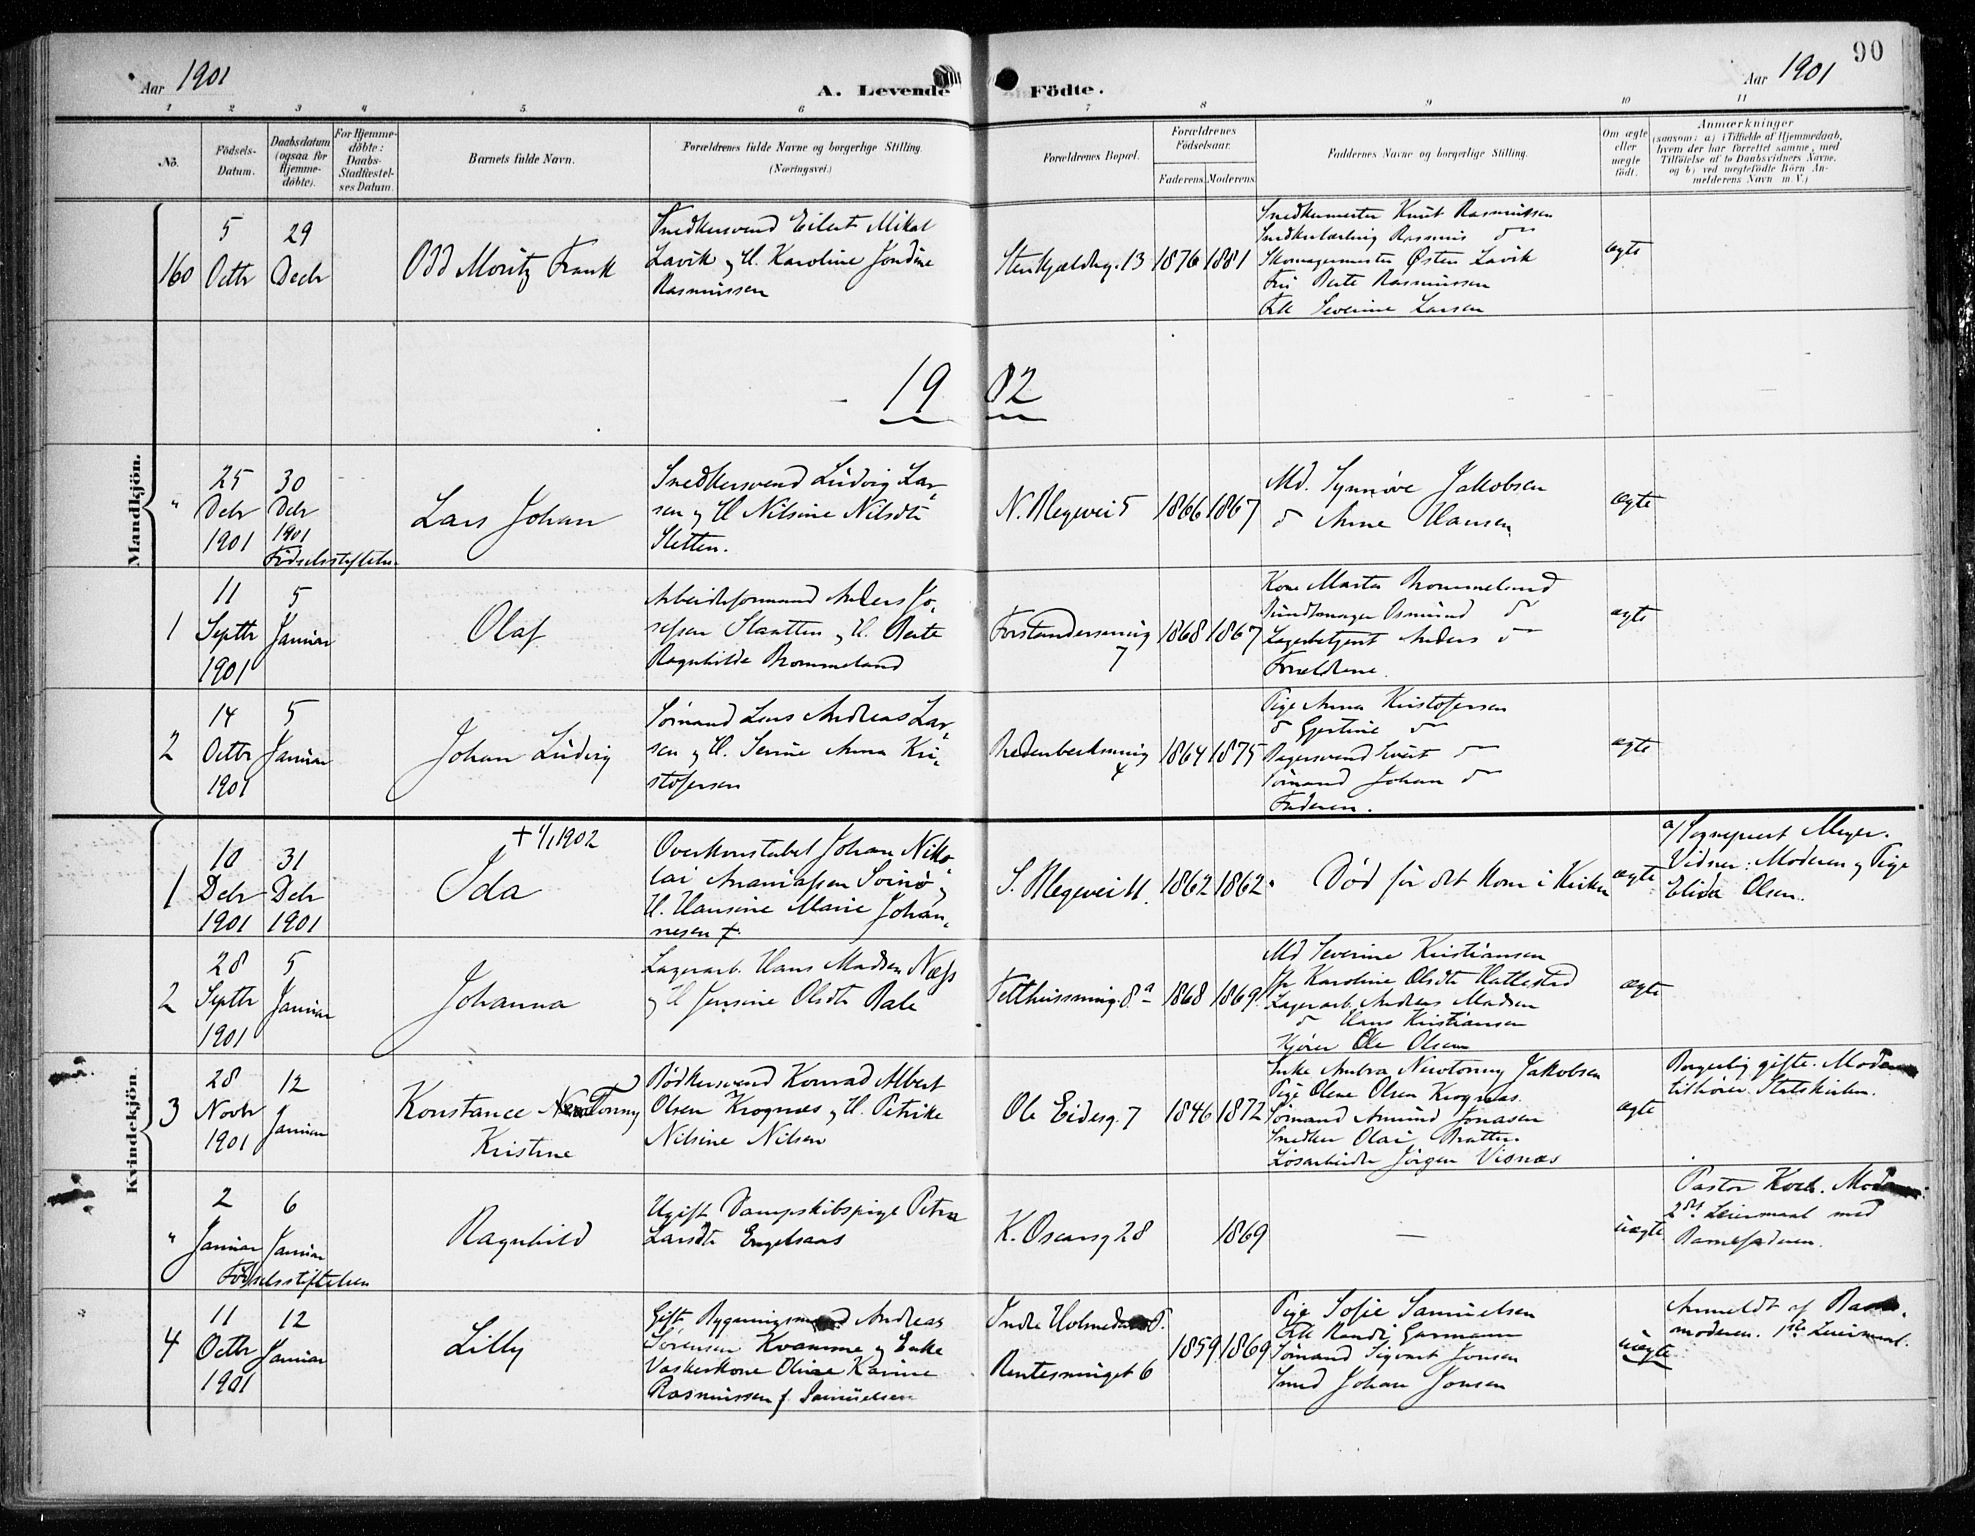 Aar 1901
A. Levende Födte.
Aar 1901
90
1 2 3 4 5. 6 7 8 9 10 11
Nō.
Födsels-Datum.
Daabsdatum (ogsaa for Hjemme-döbte).
For Hjemme-döbte: Daabs-Stadfæstel-ses Datum.
Barnets fulde Navn.
Forældrenes fulde Navne og borgerlige Stilling. (Næringsvei.)
Forældrenes Bopæl.
Forældrenes Födselsaar.
Faderens. Moderens.
Faddernes Navne og borgerlige Stilling.
Om ægte eller uægte födt.
Anmærkninger
(saasom: a) i Tilfælde af Hjemmedaab,
hvem der har forrettet samme, med
Tilföielse af to Daabsvidners Navne,
og b) ved uægtefödte Börn An-
melderens Navn m. V.)
Mandkjön.
160
5 Octbr
29 Decbr
Odd Moritz Frank
Snedkersvend Eilert Mikal
Lavik og H. Karoline Jondine
Rasmussen
13 1876 1881
Snedkermester Knut Rasmussen
Snedkerlærling Rasmus do
Skomagermester Østen Lavik
Fru Berte Rasmussen
Frk Severine Larsen
ægte
1902
"
25 Debr 1901
30 Debr 1901
Födselsstiftelsen
Lars Johan
Snedkersvend Ludvig Lar-
sen og H Nilsine Nilsdtr
Sletten.
N. Blegevei 5 1866 1867
Md. Synnöve Jakobsen
d Anne Hansen
ægte
1
11 Septbr 1901
5 Januar
Olaf
Arbeidsformand Anders Jo-
sefsen Slaatten og H. Berte
Ragnhilde Brommeland
Forstandersmug 7 1868 1867
Kone Marta Brommeland
Buntmager Osmund do
Lagerbetjent Anders do
Forældrene.
ægte
2
14 Octbr 1901
5 Januar
Johan Ludvig
Sömand Lars Andreas Lar-
sen og H. Serine Anna Kri-
stofersen
4 1864 1875
Pige Anna Kristofersen
d Gjertine do
Bagersvend Evert do
Sömand Johan do
Faderen.
ægte
Kvindekjön.
1
10 Debr 1901
31 Debr 1901
+ 1/1 1902
Ida
Overkonstabel Johan Niko-
lai Ananiassen Soinö og
H. Hansine Marie Johan-
nesen +.
S. Blegevei 11. 1862 1862
Död för det kom i Kirken
ægte
a/ Sognepræst Meyer.
Vidner: Moderen og Pige
Elida Olsen.
2
28 Septbr 1901
5 Januar
Johanna
Lagerarb. Hans Madsen Næss
og H Jensine Olsdtr Bale
8a 1868 1869
Md Severine Kristiansen
Karoline Olsdtr Hattestad
Lagerarb. Andreas Madsen
d Hans Kristiansen
Kjörer Ole Olsen
ægte
3
28 Novbr 1901
12 Januar
Konstance Tonny
Kristine
Bödkersvend Konrad Albert
Olsen Krognæs og H. Petrike
Nilsine Nilsen
Ole Eidesg. 7 1846 1872
Enke Jakobsen
Pige Olene Olsen Krognæs.
Sömand Amund Jonasen
Snedker Olai Bratten
Lösarbeider Jörgen Visnæs
ægte
Borgerlig gifte. Moderen
tilhörer Statskirken.
"
2 Januar
6 Januar
Födselsstiftelsen
Ragnhild
Ugift Dampskibspige Petra
Larsdtr Engelsaas
K. Oscarsg 28 1869
—
uægte
Pastor Koch. Moderens
2det Leiermaal med
Barnefaderen.
4
11 Octbr 1901
12 Januar
Lilly
Gift Bygningsmand Andreas
Sörensen Kvamme og Enke
Vaskerkone Oline Karine
Rasmussen f. Samuelsen
Indre
6 1859 1869
Pige Sofie Samuelsen
Frk Randi Garmann
Sömand Sigvart Jonsen
Smed Johan Jonsen
uægte
Anmeldt af Barne-
moderen. 1ste Leiermaal.